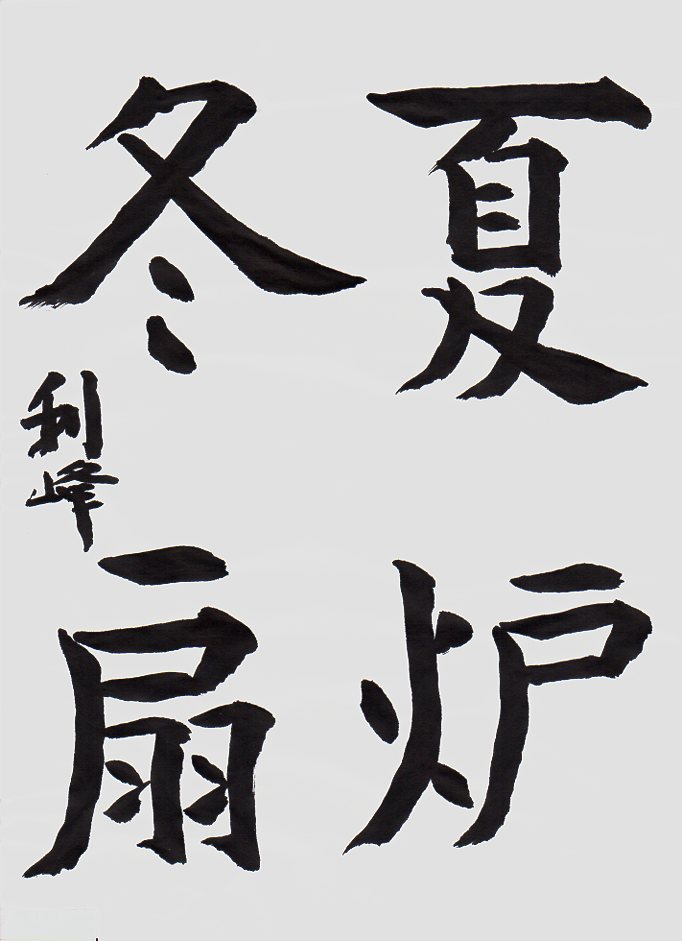 夏炉
冬扇
利峰